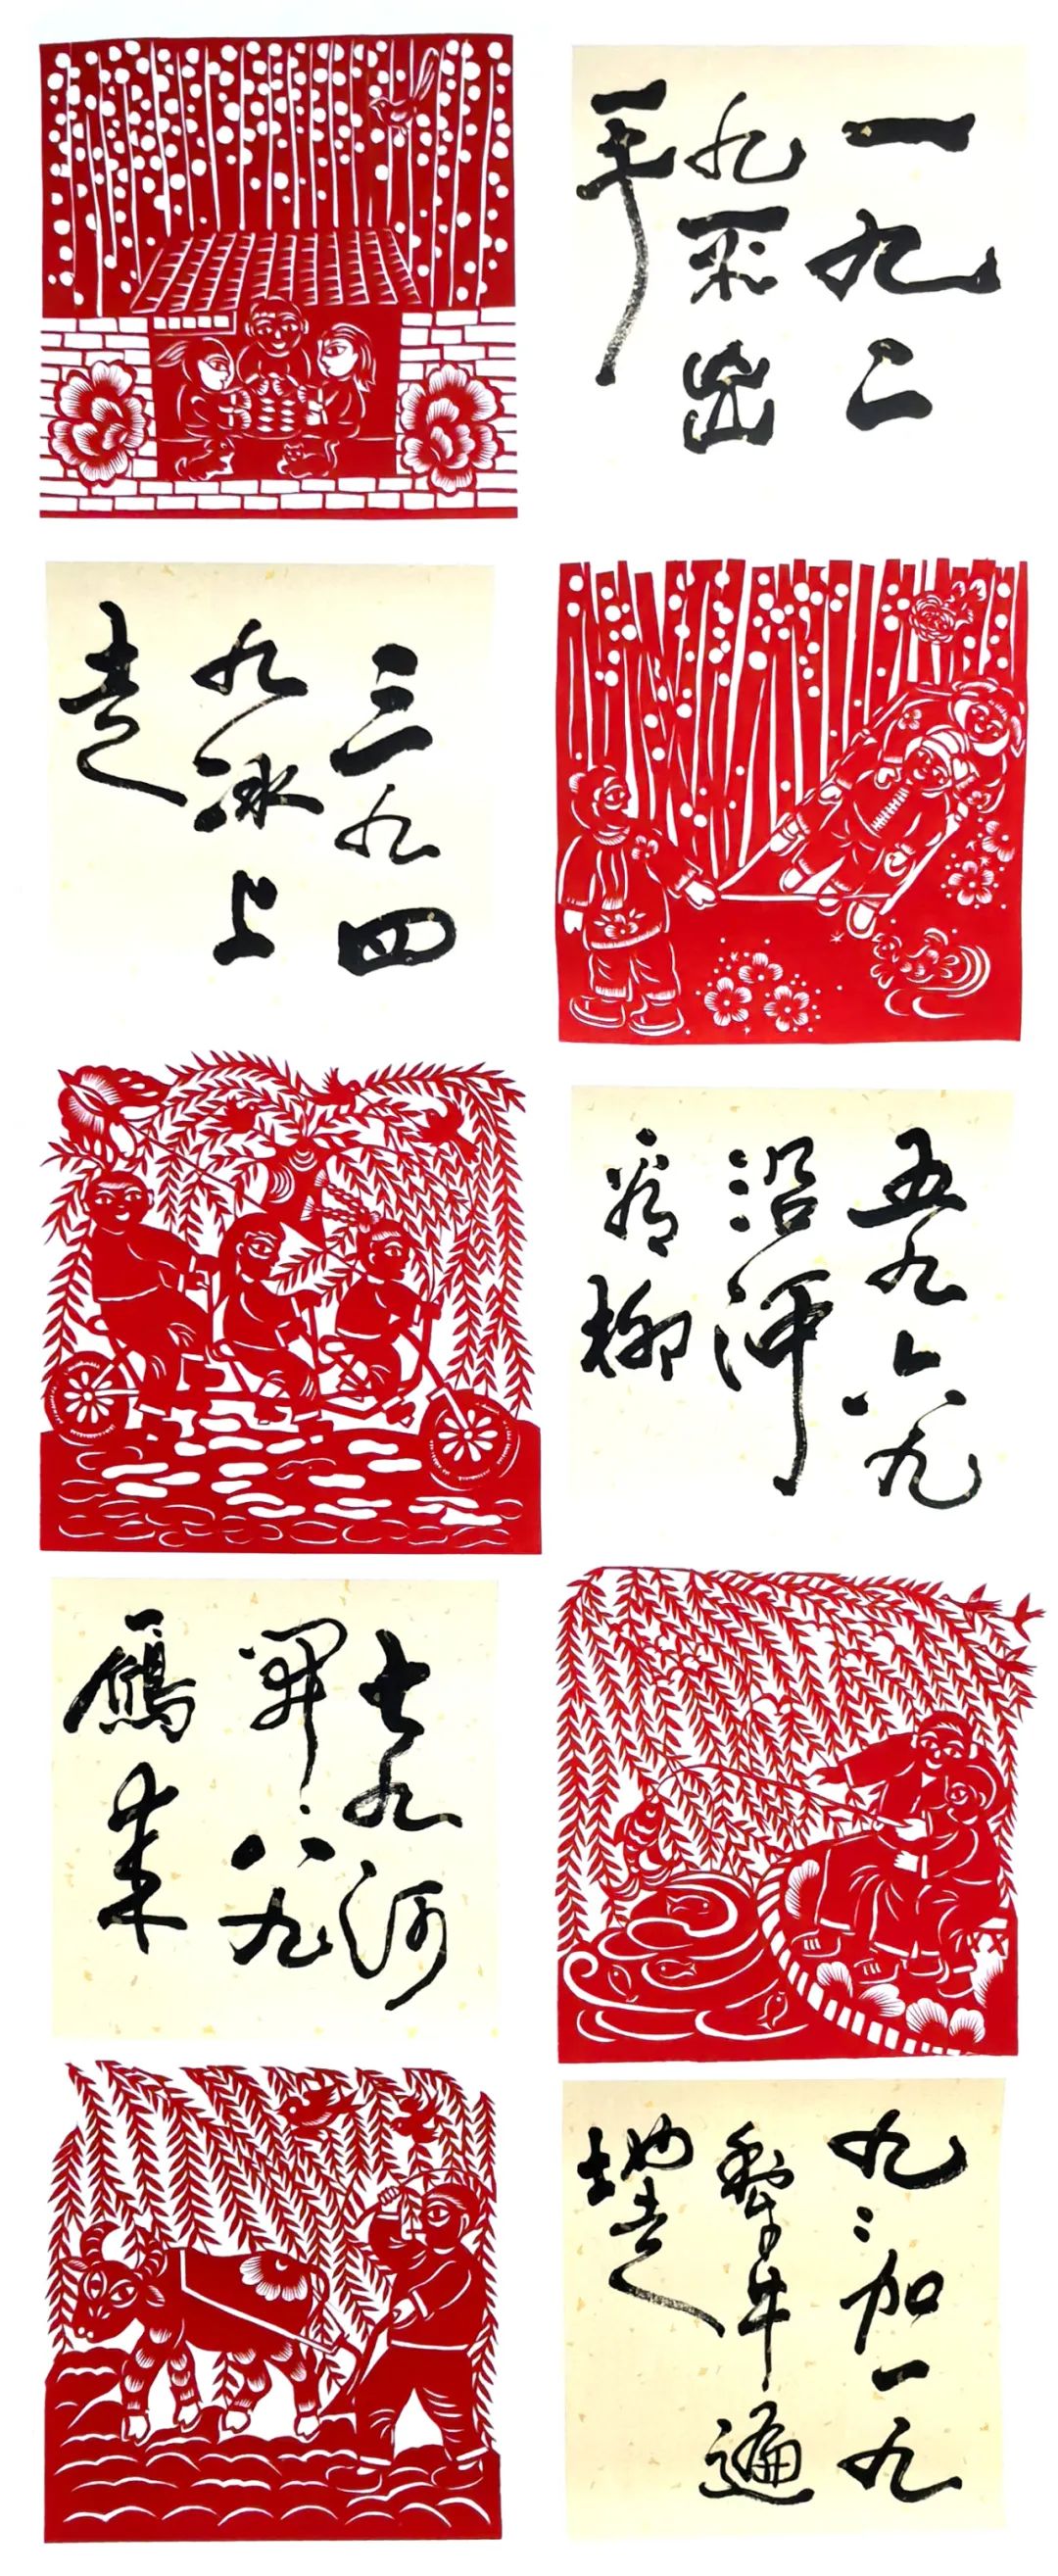 一九二
九不出
手
三九四
九冰上
走
五九六九
沿河
看柳
七九河
開八九
鴈来
九〻加一九
犁牛遍
地走